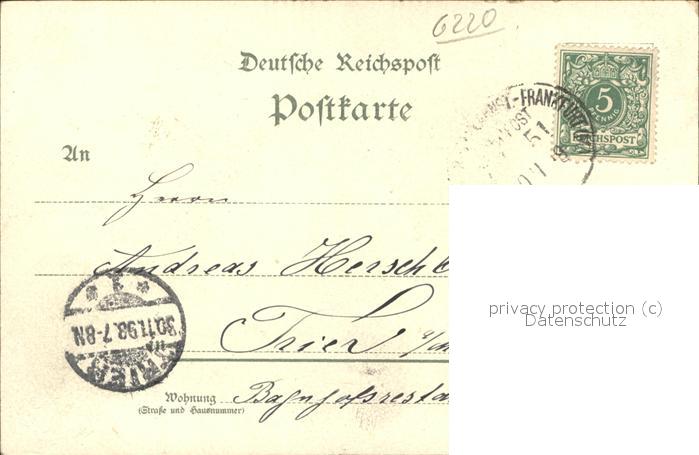 6220
Deutsche Reichspost
Postkarte
5
PFENNIG
REICHSPOST
-FRANKFURT
POST
51
An
Herrn
Andreas Hersch
Trier a/
privacy protection (c)
Datenschutz
1
30.11.98.7-8N
TRIER
Wohnung
(Straße und Hausnummer)
Bahnhofsresta